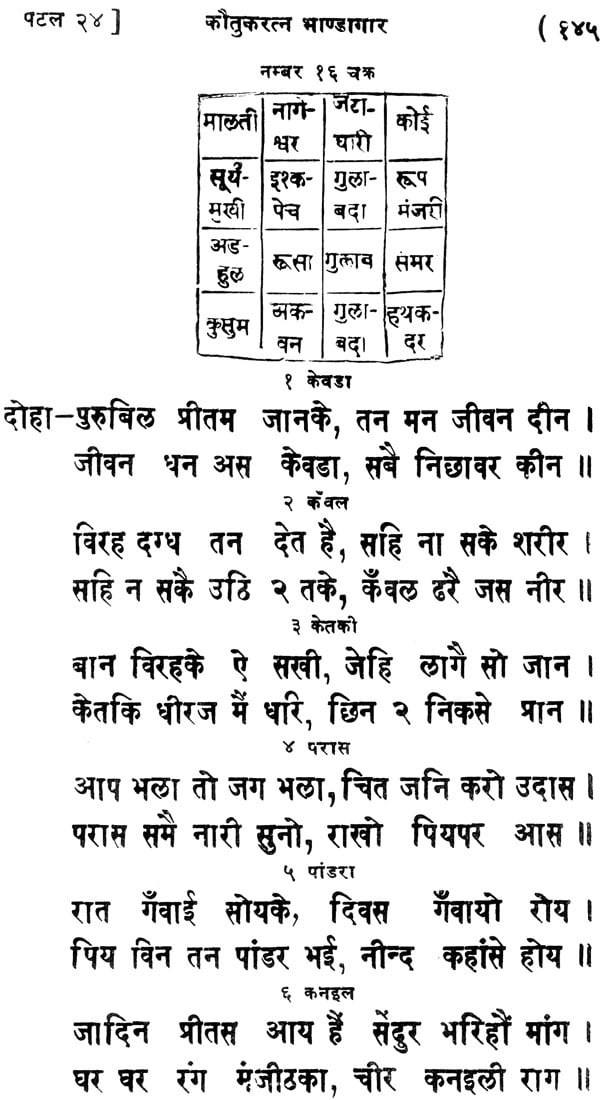 पटल २४ ] कौतुकरत्न भाण्डागार ( १४५
नम्बर १६ चक्र
मालती नागे- जटा- कोई
श्वर धारी
सूर्य- इश्क- गुला- रूप
मुखी पेच बदा मंजरी
अड- रूसा गुलाव संमर
हुल
कुसुम अक- गुला- हथक-
वन बदा दर
१ केवडा
दोहा–पुरुबिल प्रीतम जानके, तन मन जीवन दीन ।
जीवन धन अस केवडा, सबै निछावर कीन ॥
२ कँवल
विरह दग्ध तन देत है, सहि ना सके शरीर ।
सहि न सकै उठि २ तके, कँवल ढरै जस नीर ॥
३ केतकी
बान विरहके ऐ सखी, जेहि लागै सो जान ।
केतकि धीरज मैं धारि, छिन २ निकसे प्रान ॥
४ परास
आप भला तो जग भला, चित जनि करो उदास ।
परास समै नारी सुनो, राखो पियपर आस ॥
५ पांडरा
रात गँवाई सोयके, दिवस गँवायो रोय ।
पिय विन तन पांडर भई, नीन्द कहांसे होय ॥
६ कनइल
जादिन प्रीतस आय हैं सेंदुर भरिहौं मांग ।
घर घर रंग मंजीठका, चीर कनइली राग ॥